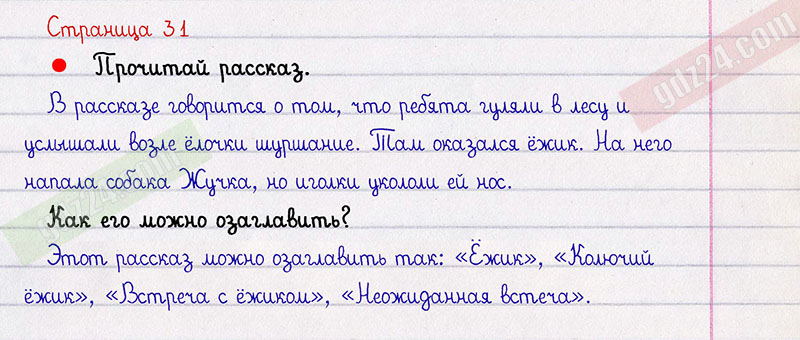 Страница 31
Прочитай рассказ.
В рассказе говорится о том, что ребята гуляли в лесу и
услышали возле ёлочки шуршание. Там оказался ёжик. На него
напала собака Жучка, но иголки укололи ей нос.
Как его можно озаглавить?
Этот рассказ можно озаглавить так: «Ёжик», «Колючий
ёжик», «Встреча с ёжиком», «Неожиданная встеча».
gdz24.com
gdz24.com